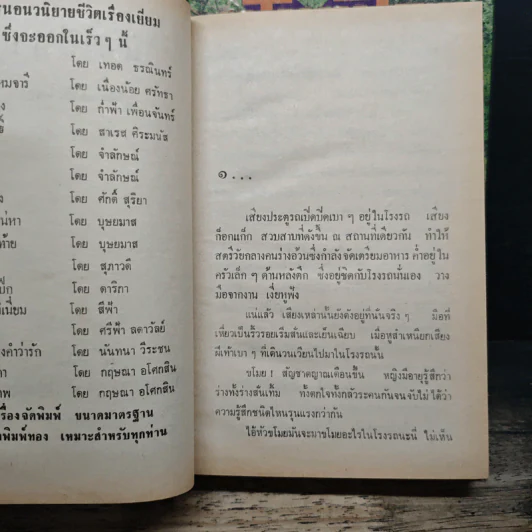 นอนวนิยายชีวิตเรื่องเยี่ยม
ซึ่งจะออกในเร็ว ๆ นี้
โดย เทอด ธรณินทร์
มจารี โดย เนื่องน้อย ศรัทธา
ง โดย ก่ำฟ้า เพื่อนจันทร์
โดย สาเรส ศิระมนัส
โดย จำลักษณ์
โดย จำลักษณ์
ง โดย ศักดิ์ สุริยา
น่หา โดย บุษยมาส
ท้าย โดย บุษยมาส
โดย สุภาวดี
โดย ดาริกา
เนี่ยม โดย สีฟ้า
โดย ศรีฟ้า ลดาวัลย์
คำว่ารัก โดย นันทนา วีระชน
โดย กฤษณา อโศกสิน
ภพ โดย กฤษณา อโศกสิน
รื่องจัดพิมพ์ ขนาดมาตรฐาน
พิมพ์ทอง เหมาะสำหรับทุกท่าน
๑ . . .
เสียงประตูรถเปิดปิดเบา ๆ อยู่ในโรงรถ เสียง
ก็อกแก็ก สวบสาบที่ดังขึ้น ณ สถานที่เดียวกัน ทำให้
สตรีวัยกลางคนร่างอ้วนซึ่งกำลังจัดเตรียมอาหาร ค่ำอยู่ใน
ครัวเล็ก ๆ ด้านหลังตึก ซึ่งอยู่ชิดกับโรงรถนั่นเอง วาง
มือจากงาน เงี่ยหูฟัง
แน่แล้ว เสียงเหล่านั้นยังดังอยู่ที่นั่นจริง ๆ มือที่
เหี่ยวเป็นริ้วรอยเริ่มสั่นและเย็นเฉียบ เมื่อหูสำเหนียกเสียง
ฝีเท้าเบา ๆ ที่เดินวนเวียนไปมาในโรงรถนั้น
ขโมย ! สัญชาตญาณเตือนขึ้น หญิงมีอายุรู้สึกว่า
ร่างทั้งร่างสั่นเทิ้ม ทั้งตกใจทั้งกลัวระคนกันจนจับไม่ได้ว่า
ความรู้สึกชนิดไหนรุนแรงกว่ากัน
ไอ้หัวขโมยมันจะมาขโมยอะไรในโรงรถนะนี่ ไม่เห็น